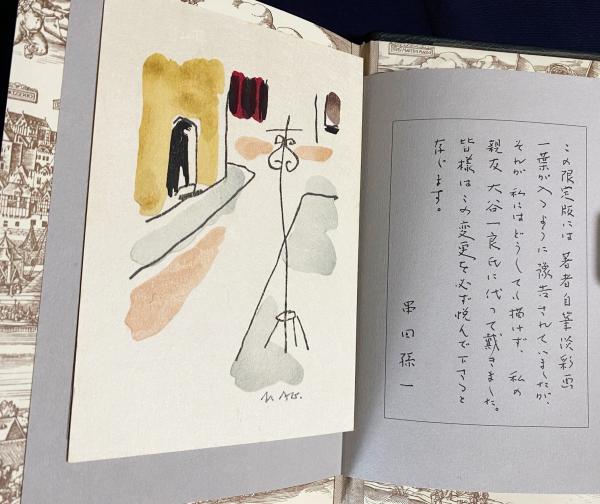 この限定版には 著者自筆淡彩画
一葉が入るように豫告されていましたが、
それが 私にはどうしても描けず、 私の
親友 大谷一良氏に代って戴きました。
皆様はこの変更を必ず悦んで下さると
存じます。
串田孫一